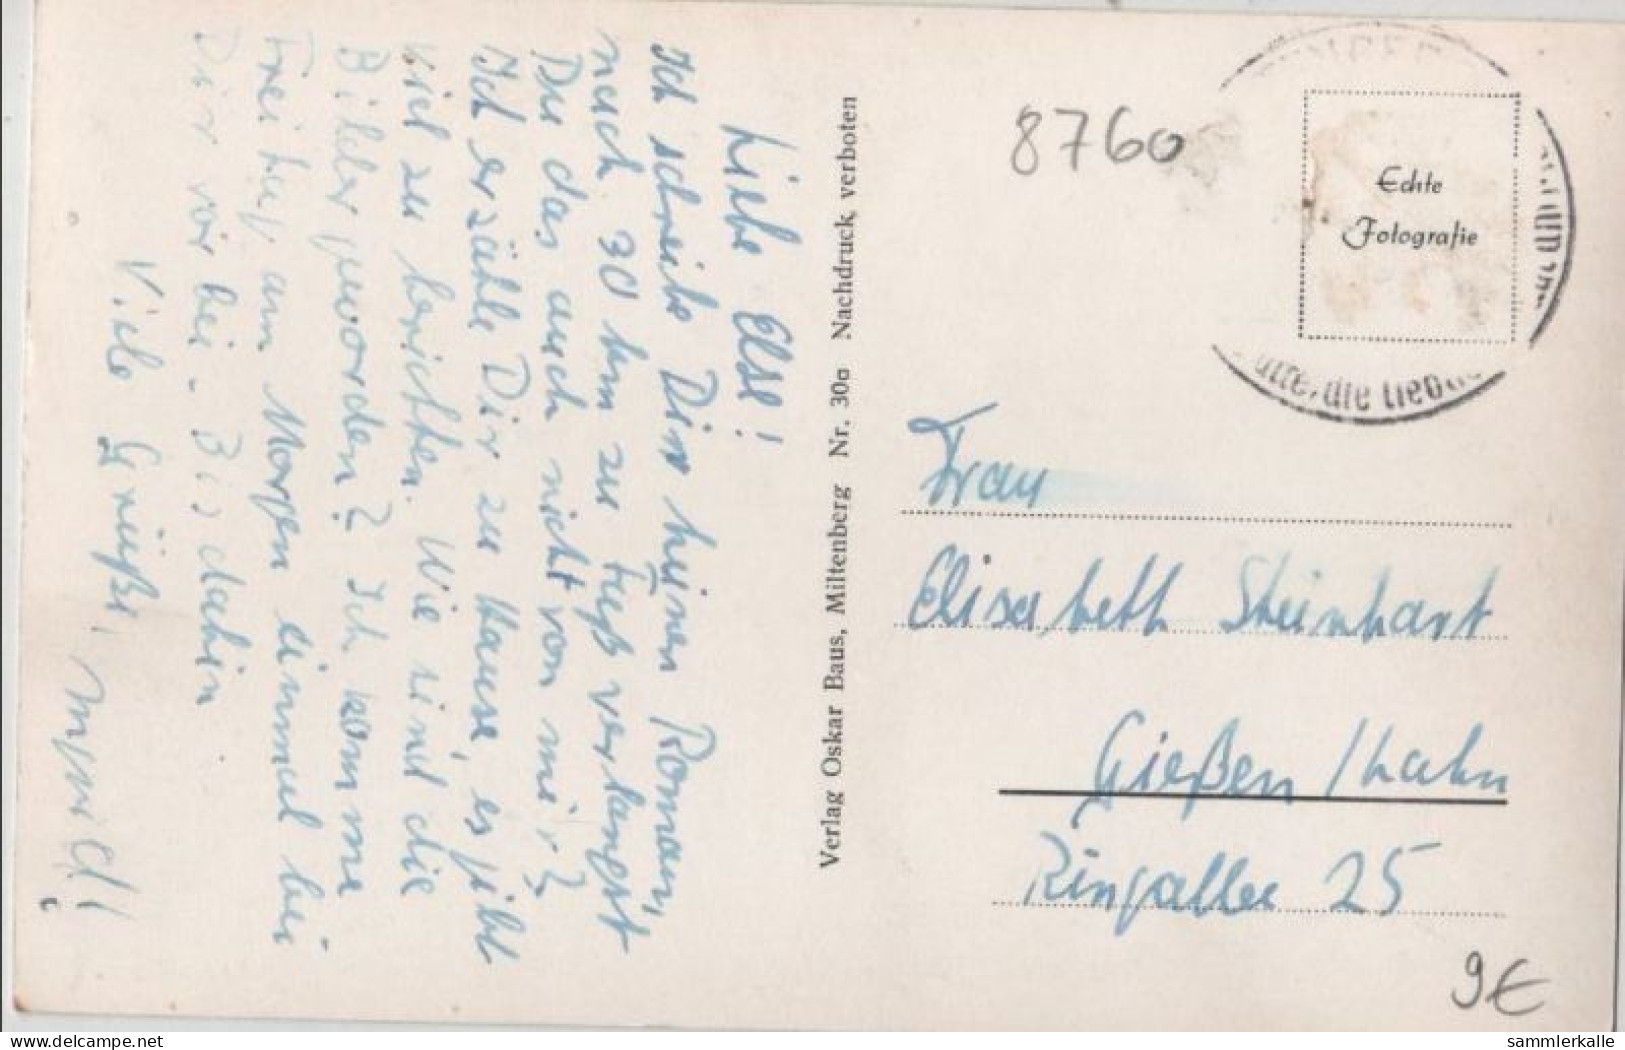 Liebe Else!
Ich schreibe Dir keinen Roman,
nach 30 km zu Fuß verlangst
Du das auch nicht von mir?
Ich erzähle Dir zu Hause, es gibt
viel zu berichten. Wie sind die
Bilder geworden? Ich komme
Freitag am Morgen einmal bei
Dir vorbei. Bis dahin
Viele Grüße,
Verlag Oskar Baus, Miltenberg Nr. 30a Nachdruck verboten
8760
Echte
Fotografie
die
Frau
Elisabeth Steinhart
Gießen / Lahn
Ringallee 25
9€
www.delcampe.net
sammlerkalle